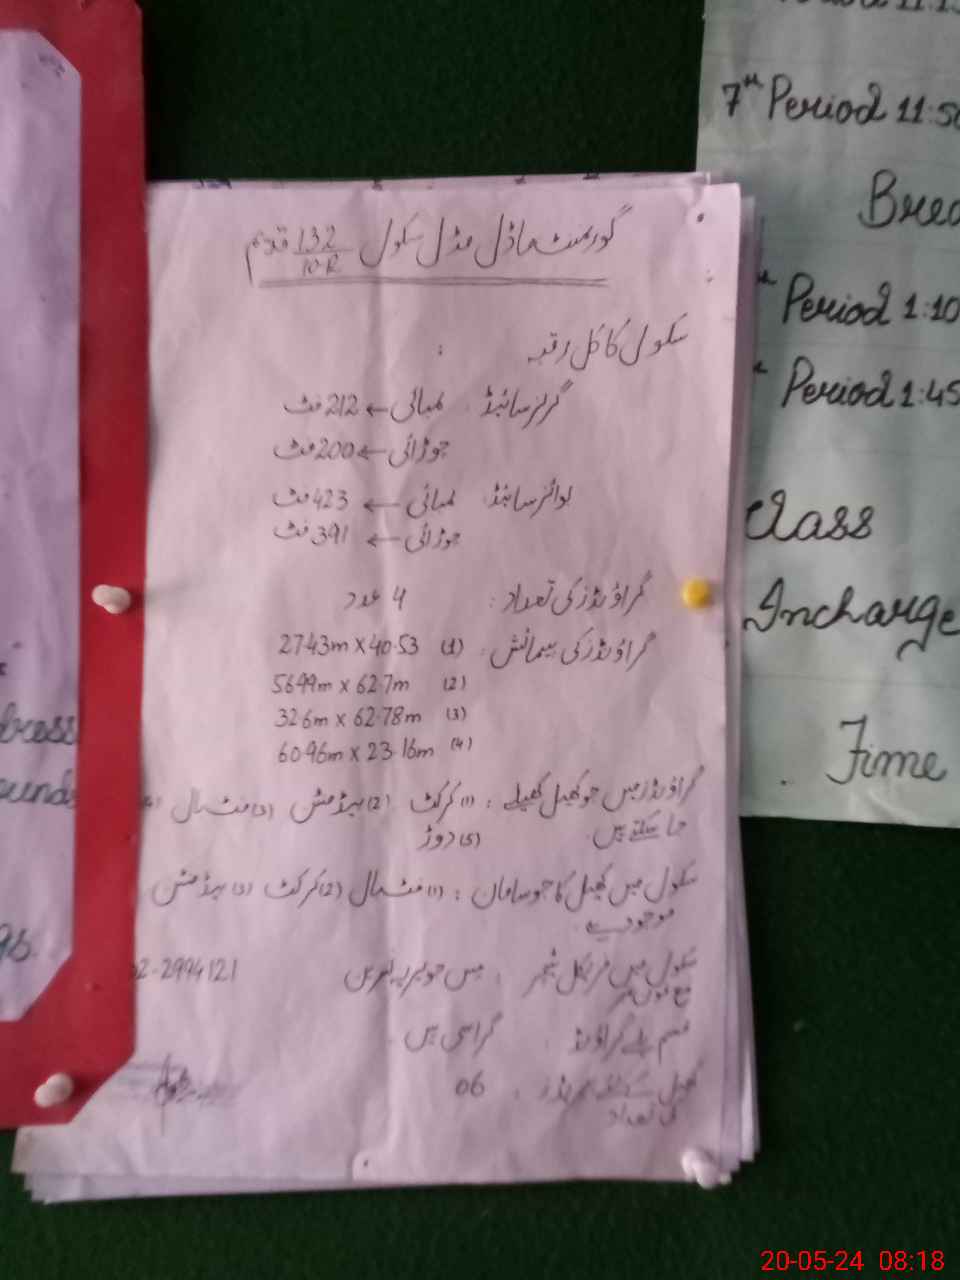 گورنمنٹ ماڈل مڈل سکول 132/10-R قدیم
سکول کا کل رقبہ :
گرلز سائیڈ : لمبائی ← 212 فٹ
چوڑائی ← 200 فٹ
بوائز سائیڈ : لمبائی ← 423 فٹ
چوڑائی ← 391 فٹ
گراؤنڈز کی تعداد : 4 عدد
گراؤنڈز کی پیمائش : (1) 27.43m X 40.53
(2) 56.99m x 62.7m
(3) 32.6m x 62.78m
(4) 60.96m x 23.16m
گراؤنڈز میں جو کھیل کھیلے : (1) کرکٹ (2) بیڈمنٹن (3) فٹ بال
جا سکتے ہیں (5) دوڑ
سکول میں کھیل کا جو سامان : (1) فٹ بال (2) کرکٹ (3) بیڈمنٹن
موجود ہے
سکول میں فزیکل ٹیچر : مس جویریہ 2-2994121
مع فون نمبر
قسم پلے گراؤنڈ : گراسی ہیں
کھیل کے لئے پیریڈز : 06
کی تعداد
7th Period 11:50
Period 1:10
Period 1:45
Class
Incharge
Time
20-05-24 08:18